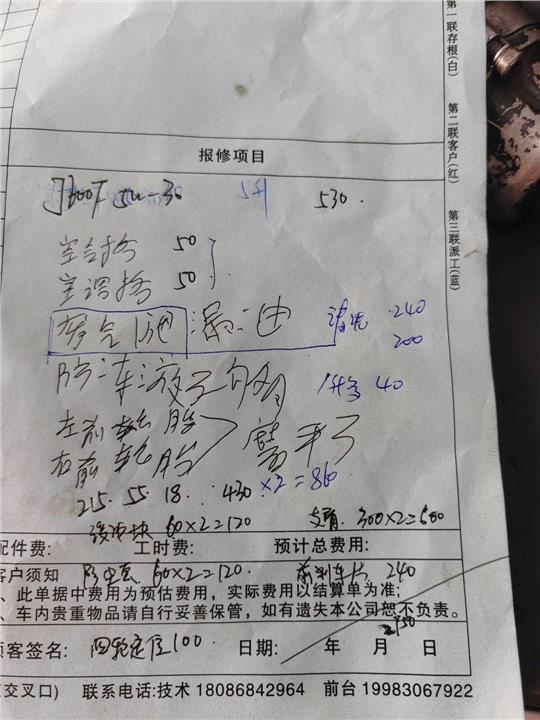 第一联存根(白)
第二联客户(红)
第三联派工(蓝)
报修项目
5w-30 5升 530.
空气格 50
空调格 50
漏油 清洗 240
200
1瓶 40
左前轮胎
右前轮胎 磨平了
215 55 18 430 ×2=860
缓冲块 60×2=120 300×2=600
配件费: 工时费: 预计总费用:
客户须知 防尘套 60×2=120. 前刹车片 240
、此单据中费用为预估费用，实际费用以结算单为准;
、车内贵重物品请自行妥善保管，如有遗失本公司恕不负责。
顾客签名: 四轮定位100 日期: 年 月 日
(交叉口) 联系电话:技术 18086842964 前台 19983067922